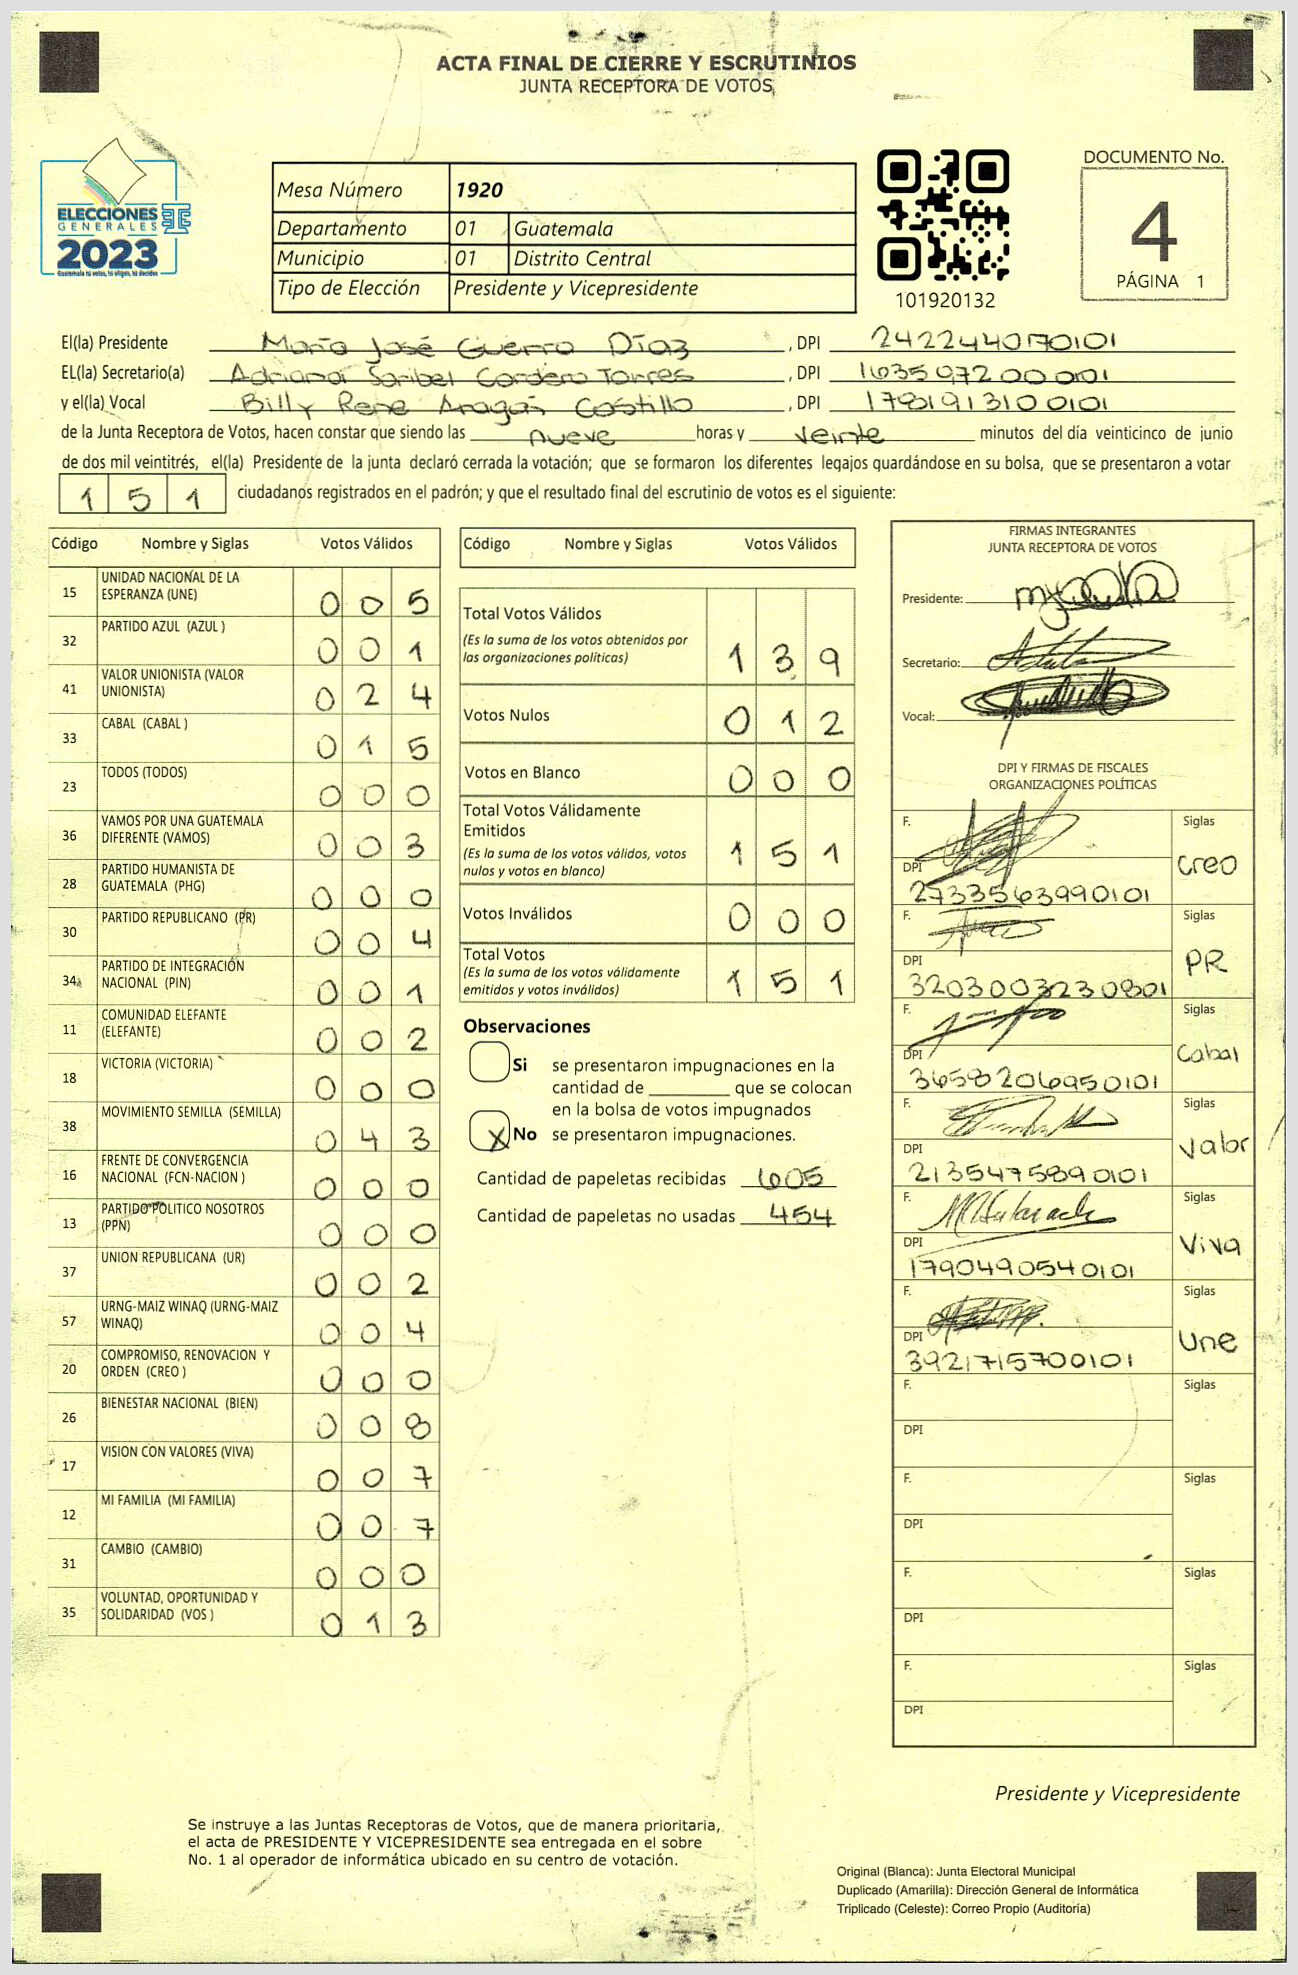 ACTA FINAL DE CIERRE Y ESCRUTINIOS
JUNTA RECEPTORA DE VOTOS
ELECCIONES
GENERALES
2023
Guatemala tú votas, tú eliges, tú decides
Mesa Número 1920
Departamento 01 Guatemala
Municipio 01 Distrito Central
Tipo de Elección Presidente y Vicepresidente
101920132
DOCUMENTO No.
4
PÁGINA 1
El(la) Presidente María José Guerra Díaz, DPI 2422440170101
EL(la) Secretario(a) Adriana Saribel Cordero Torres, DPI 1635072000101
y el(la) Vocal Billy Rene Aragón Castillo, DPI 1781913100101
de la Junta Receptora de Votos, hacen constar que siendo las nueve horas y veinte minutos del día veinticinco de junio
de dos mil veintitrés, el(la) Presidente de la junta declaró cerrada la votación; que se formaron los diferentes legajos guardándose en su bolsa, que se presentaron a votar
151 ciudadanos registrados en el padrón; y que el resultado final del escrutinio de votos es el siguiente:
Código Nombre y Siglas Votos Válidos
15 UNIDAD NACIONAL DE LA
ESPERANZA (UNE) 005
32 PARTIDO AZUL (AZUL ) 001
41 VALOR UNIONISTA (VALOR
UNIONISTA) 024
33 CABAL (CABAL ) 015
23 TODOS (TODOS) 000
36 VAMOS POR UNA GUATEMALA
DIFERENTE (VAMOS) 003
28 PARTIDO HUMANISTA DE
GUATEMALA (PHG) 000
30 PARTIDO REPUBLICANO (PR) 004
34 PARTIDO DE INTEGRACIÓN
NACIONAL (PIN) 001
11 COMUNIDAD ELEFANTE
(ELEFANTE) 002
18 VICTORIA (VICTORIA) 000
38 MOVIMIENTO SEMILLA (SEMILLA) 043
16 FRENTE DE CONVERGENCIA
NACIONAL (FCN-NACION ) 000
13 PARTIDO POLITICO NOSOTROS
(PPN) 000
37 UNION REPUBLICANA (UR) 002
57 URNG-MAIZ WINAQ (URNG-MAIZ
WINAQ) 004
20 COMPROMISO, RENOVACION Y
ORDEN (CREO ) 000
26 BIENESTAR NACIONAL (BIEN) 008
17 VISION CON VALORES (VIVA) 007
12 MI FAMILIA (MI FAMILIA) 007
31 CAMBIO (CAMBIO) 000
35 VOLUNTAD, OPORTUNIDAD Y
SOLIDARIDAD (VOS ) 013
Código Nombre y Siglas Votos Válidos
Total Votos Válidos
(Es la suma de los votos obtenidos por
las organizaciones políticas) 139
Votos Nulos 012
Votos en Blanco 000
Total Votos Válidamente
Emitidos
(Es la suma de los votos válidos, votos
nulos y votos en blanco) 151
Votos Inválidos 000
Total Votos
(Es la suma de los votos válidamente
emitidos y votos inválidos) 151
Observaciones
Si se presentaron impugnaciones en la
cantidad de ________ que se colocan
en la bolsa de votos impugnados
X No se presentaron impugnaciones.
Cantidad de papeletas recibidas 605
Cantidad de papeletas no usadas 454
FIRMAS INTEGRANTES
JUNTA RECEPTORA DE VOTOS
Presidente:
Secretario:
Vocal:
DPI Y FIRMAS DE FISCALES
ORGANIZACIONES POLÍTICAS
F. Siglas
DPI creo
2733563990101
F. Siglas
DPI PR
3203003230801
F. Siglas
DPI Cabal
3658206950101
F. Siglas
DPI Valor
2135475890101
F. Siglas
DPI Viva
1790490540101
F. Siglas
DPI Une
3921715700101
F. Siglas
DPI
F. Siglas
DPI
F. Siglas
DPI
F. Siglas
DPI
Presidente y Vicepresidente
Se instruye a las Juntas Receptoras de Votos, que de manera prioritaria,
el acta de PRESIDENTE Y VICEPRESIDENTE sea entregada en el sobre
No. 1 al operador de informática ubicado en su centro de votación.
Original (Blanca): Junta Electoral Municipal
Duplicado (Amarilla): Dirección General de Informática
Triplicado (Celeste): Correo Propio (Auditoría)